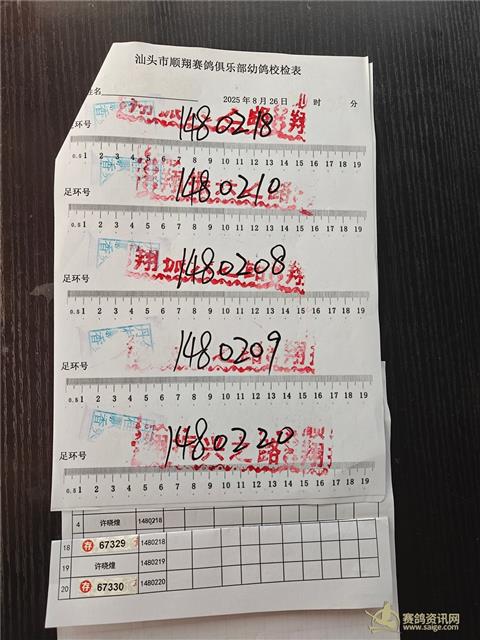 汕头市顺翔赛鸽俱乐部幼鸽校检表
姓名 2025年8月26日 时 分
足环号 1480218
0.5 1 2 3 4 5 6 7 8 9 10 11 12 13 14 15 16 17 18 19
足环号 1480210
0.5 1 2 3 4 5 6 7 8 9 10 11 12 13 14 15 16 17 18 19
足环号 1480208
0.5 1 2 3 4 5 6 7 8 9 10 11 12 13 14 15 16 17 18 19
足环号 1480209
0.5 1 2 3 4 5 6 7 8 9 10 11 12 13 14 15 16 17 18 19
足环号 1480220
0.5 1 2 3 4 5 6 7 8 9 10 11 12 13 14 15 16 17 18 19
4 许晓煌 1480218
18 存 67329 1480218
19 许晓煌 1480219
20 存 67330 1480220
赛鸽资讯网
www.saige.com